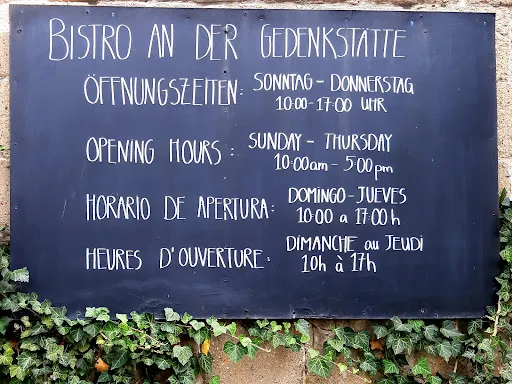 BISTRO AN DER GEDENKSTÄTTE
ÖFFNUNGSZEITEN: SONNTAG - DONNERSTAG
10:00-17:00 UHR
OPENING HOURS: SUNDAY - THURSDAY
10:00am - 5:00pm
HORARIO DE APERTURA: DOMINGO - JUEVES
10:00 a 17:00 h
HEURES D'OUVERTURE: DIMANCHE au JEUDI
10h à 17h